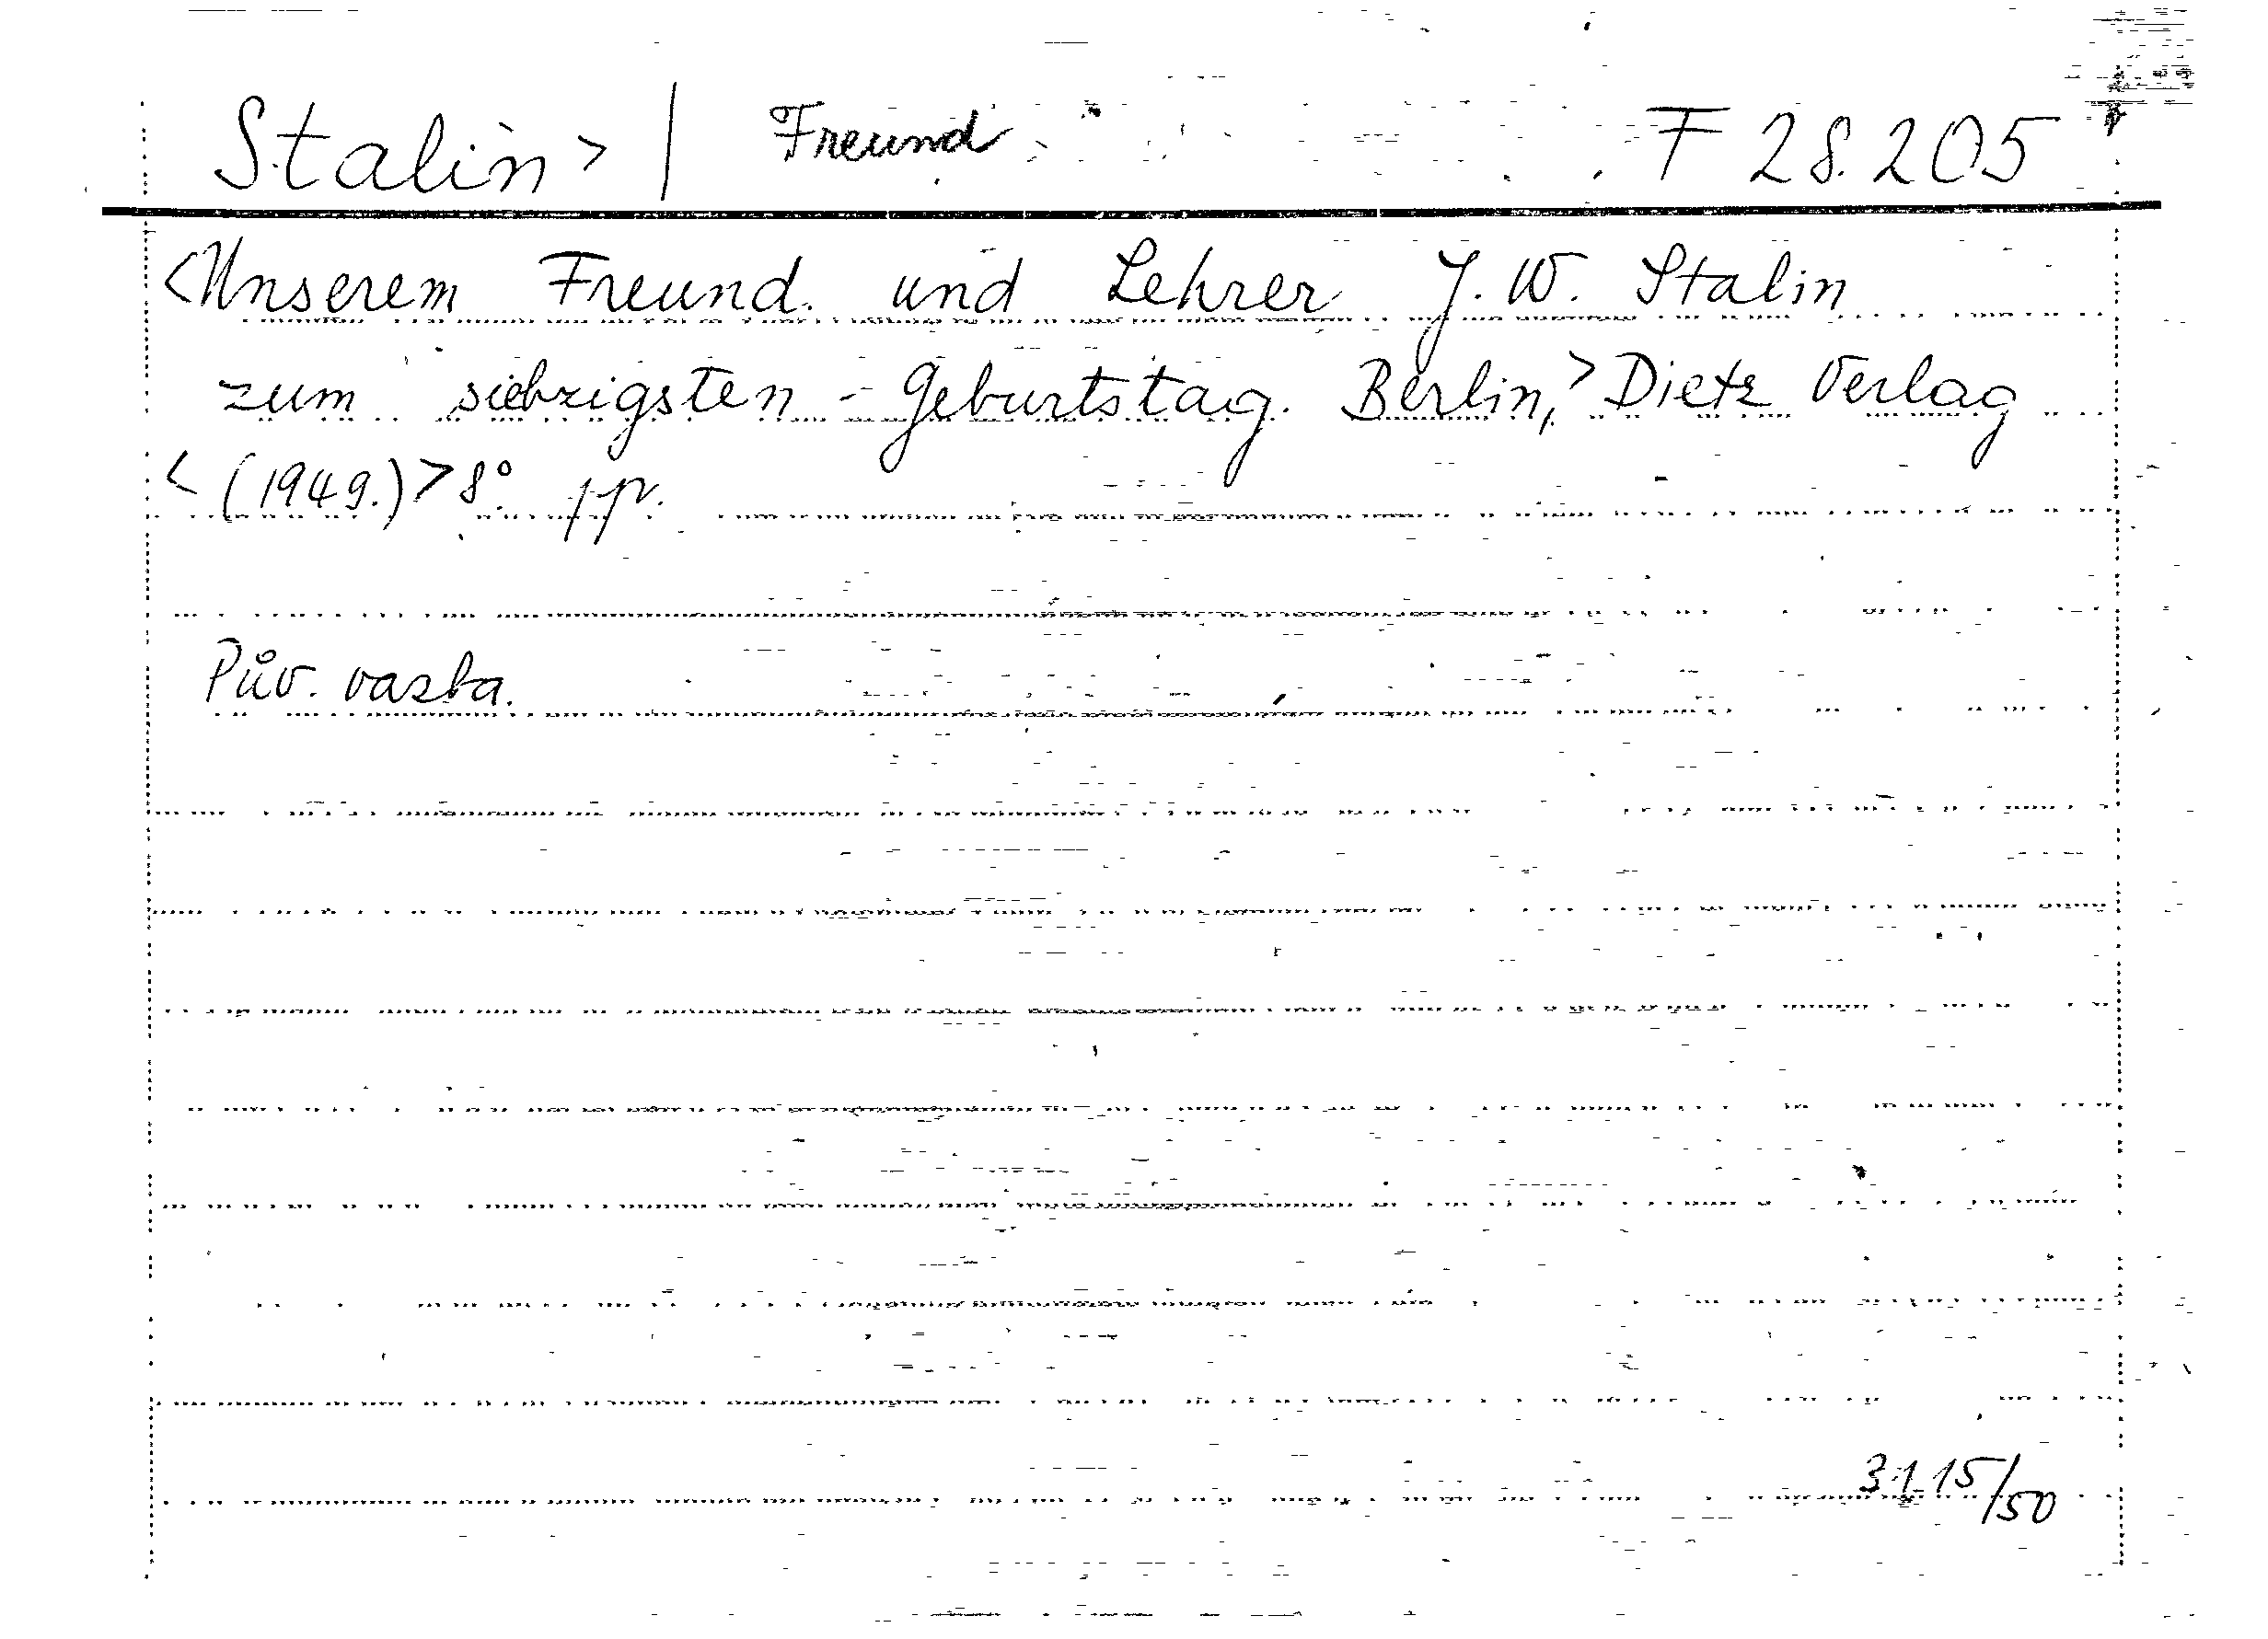 Stalin > | Freund F 28.205
<Unserem Freund. und Lehrer J. W. Stalin
zum siebzigsten - Geburtstag. Berlin,> Dietz Verlag
< (1949.) > 8°. pp.
Pův. vazba.
3115/50